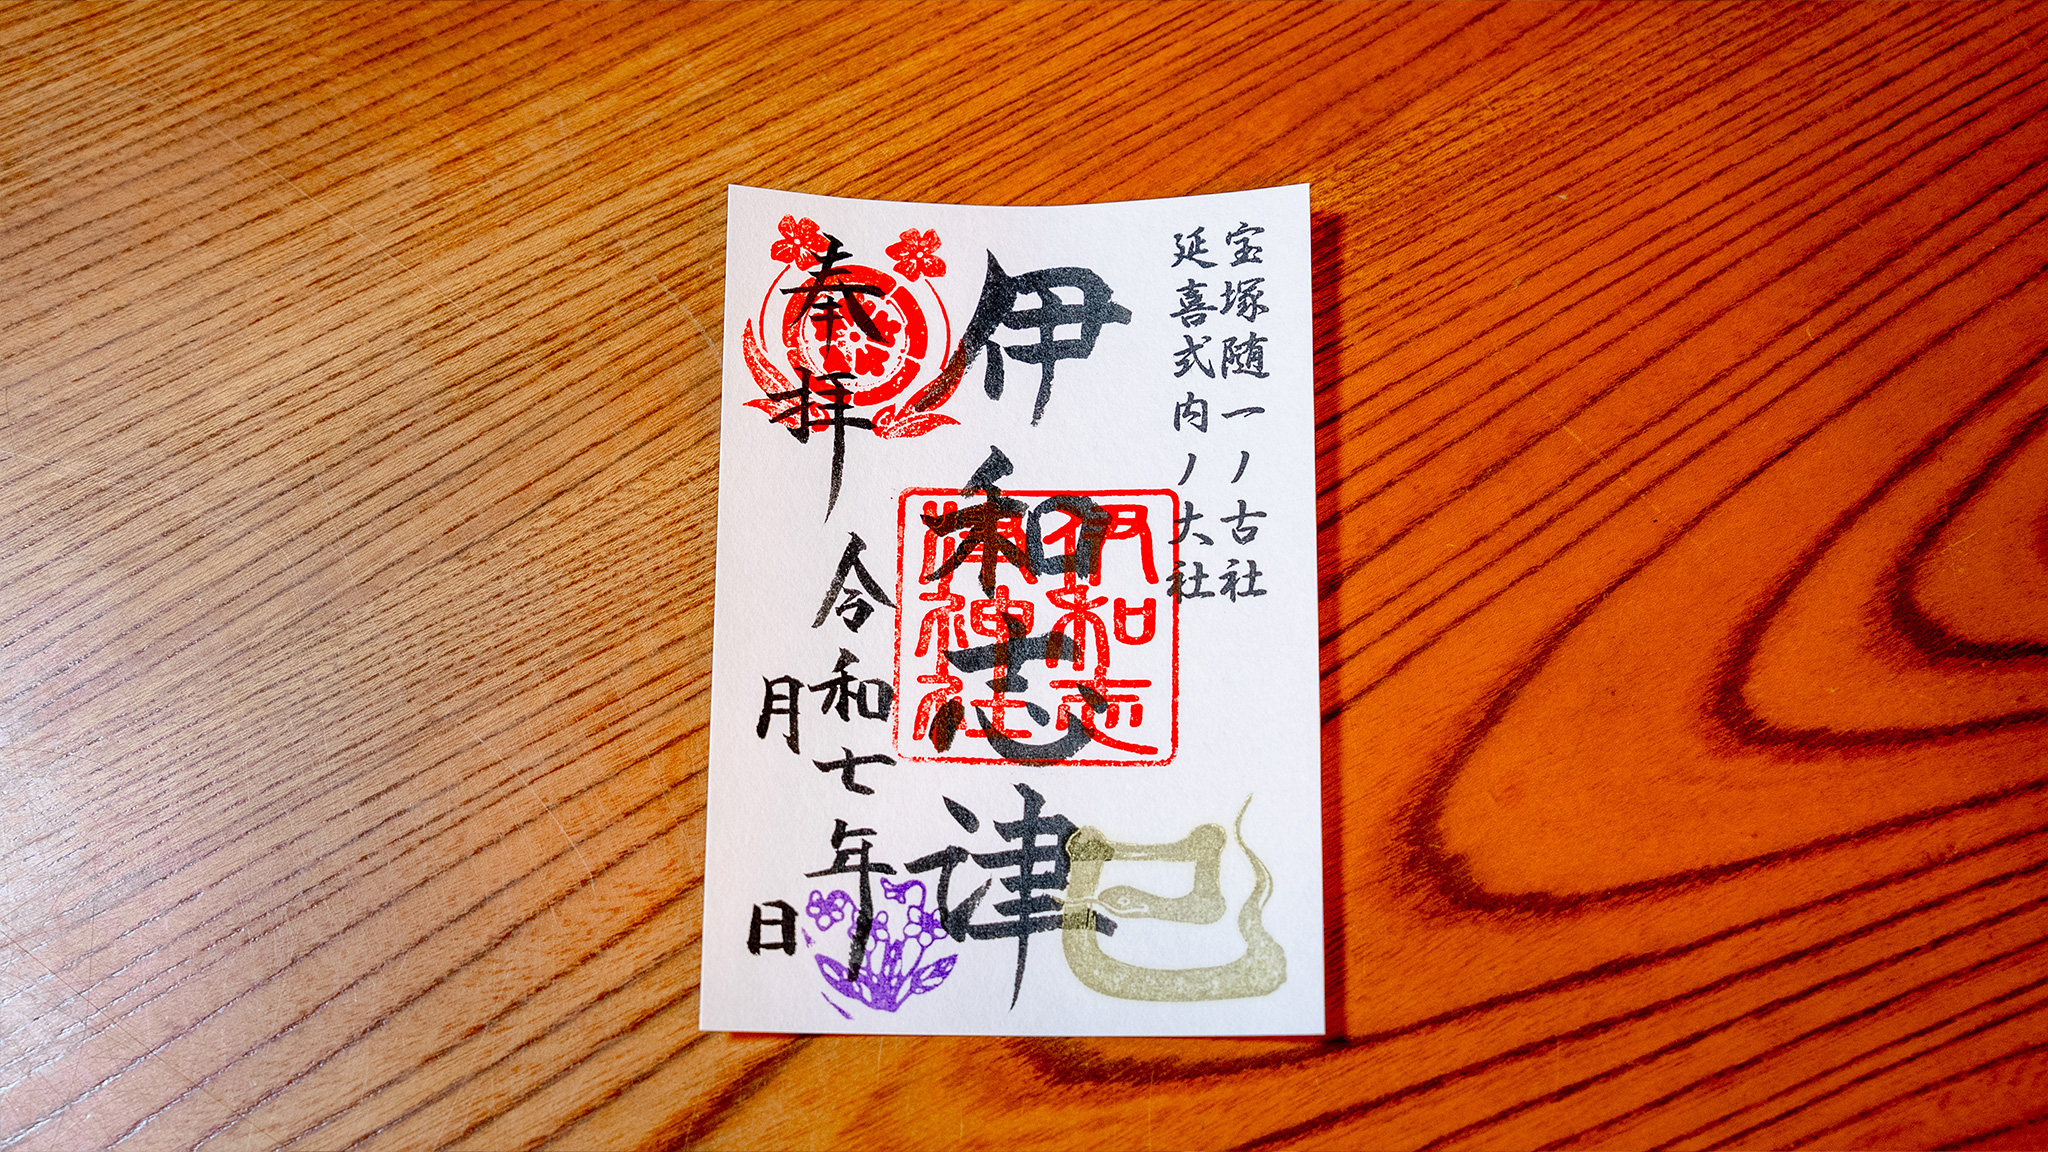 宝塚随一ノ古社
延喜式内ノ大社
伊和志津
伊和志
津神社
奉拝
令和七年
月
日
巳